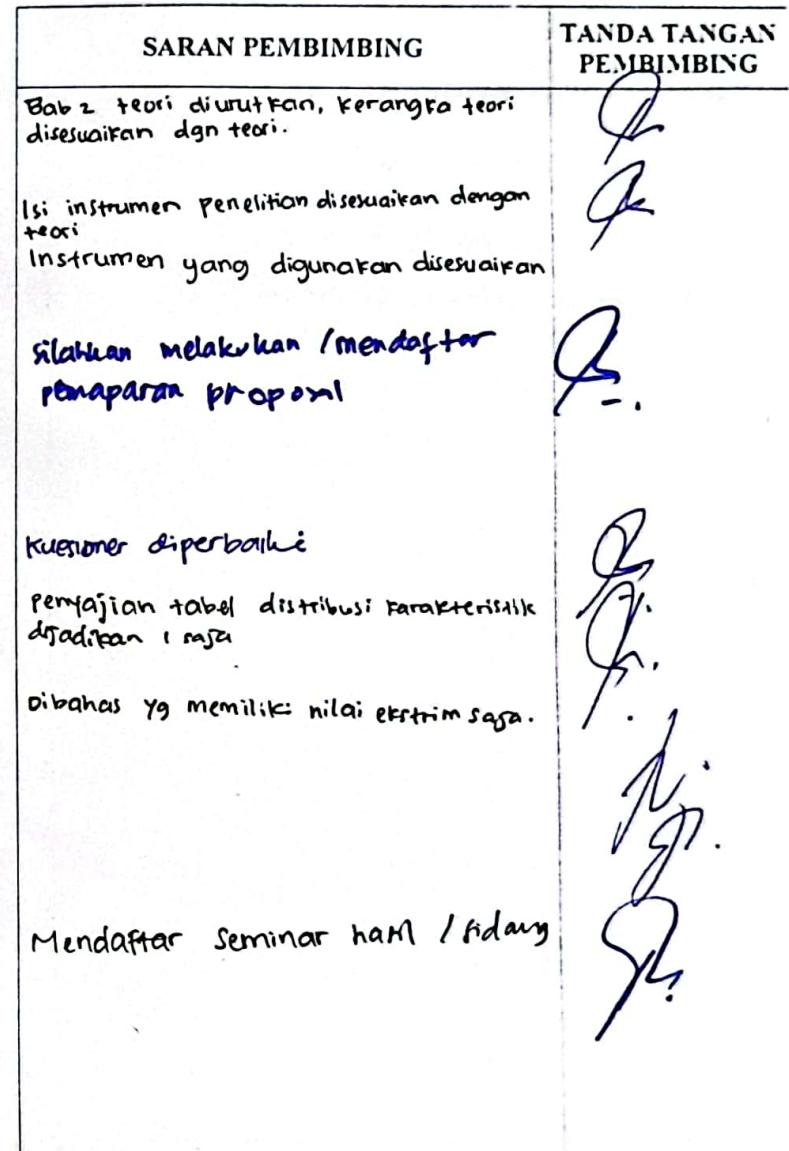 SARAN PEMBIMBING
TANDA TANGAN
PEMBIMBING
Bab 2 teori diurutkan, kerangka teori
disesuaikan dgn teori.
Isi instrumen penelitian disesuaikan dengan
teori
Instrumen yang digunakan disesuaikan
silahkan melakukan / mendaftar
pemaparan proposal
Kuesioner diperbaiki
Penyajian tabel distribusi karakteristik
dijadikan 1 saja
Dibahas yg memiliki nilai ekstrim saja.
Mendaftar seminar hasil / sidang